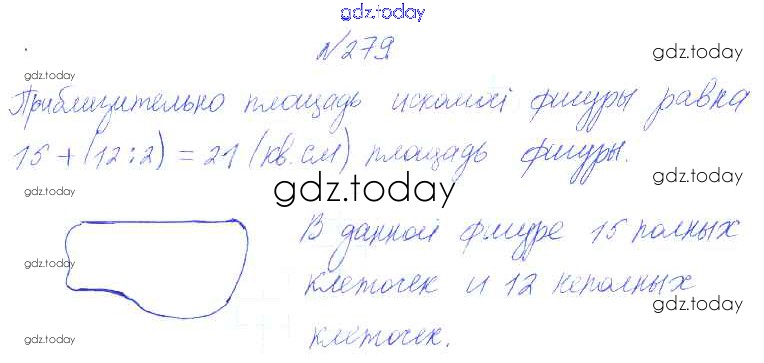 gdz.today
№279
gdz.today
gdz.today
Приблизительно площадь искомой фигуры равна
15 + (12:2) = 21 (кв.см) площадь фигуры.
gdz.today
gdz.today
gdz.today
В данной фигуре 15 полных
gdz.today
клеточек и 12 неполных
gdz.today
клеточек.
gdz.today